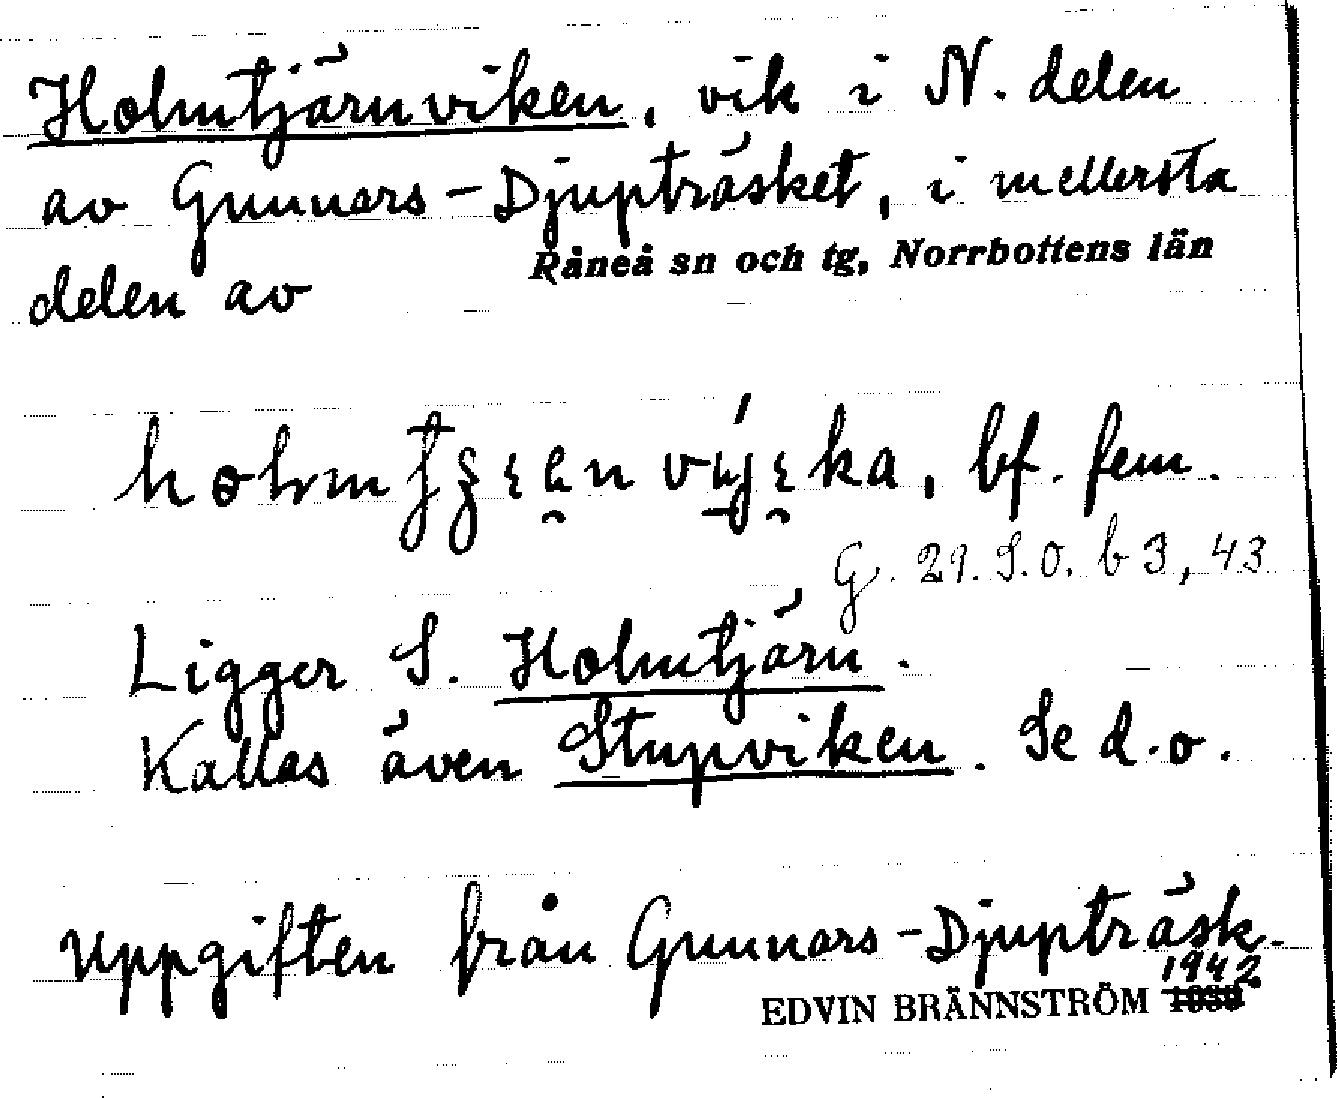 Holmtjärnviken, vik i N. delen
av Gunnars-Djupträsket, i mellersta
delen av Råneå sn och tg, Norrbottens län
bf. fem.
G. 29. S.O. b 3, 43
Ligger S. Holmtjärn.
Kallas även Stupviken. Se d.o.
Uppgiften från Gunnars-Djupträsk.
1942
EDVIN BRÄNNSTRÖM